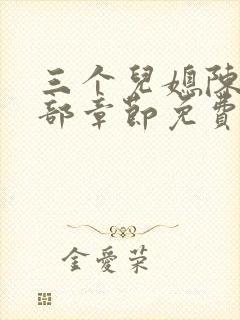 三个兒媳陳
部章節免費
金愛荣